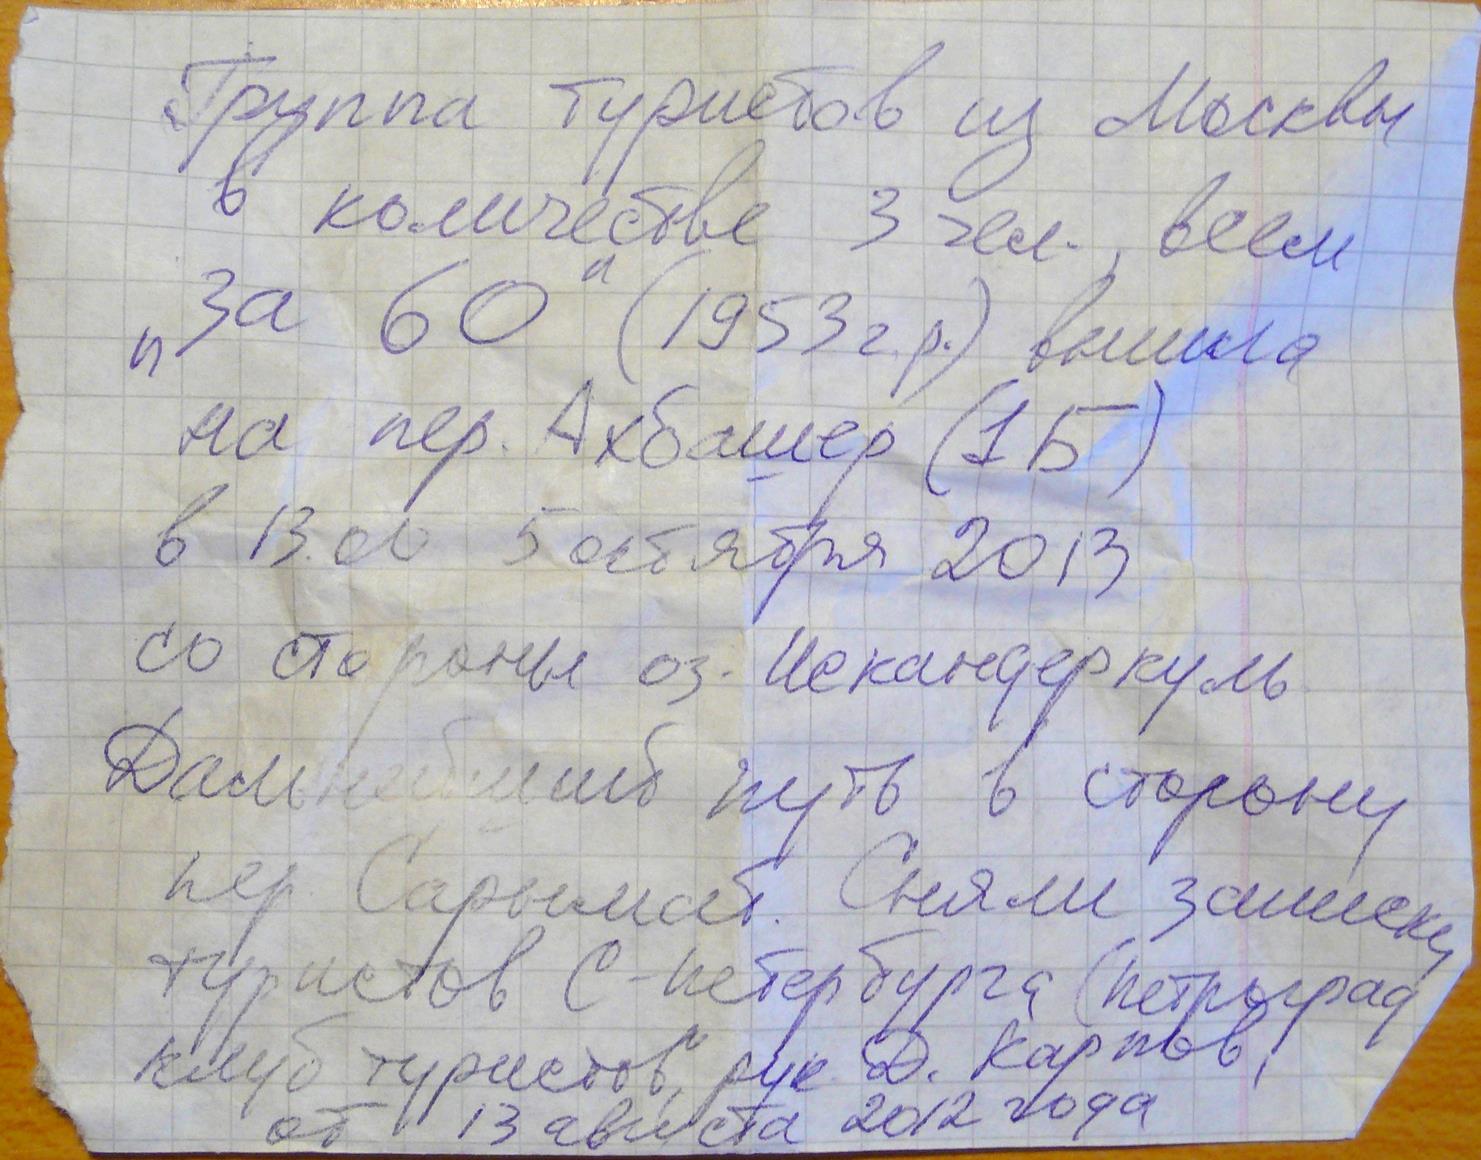 Группа туристов из Москвы
в количестве 3 чел., всем
„За 60" (1953 г.р.) вышла
на пер. Ахбашер (1Б)
в 13.00 5 октября 2013
со стороны оз. Искандеркуль
Дальнейший путь в сторону
пер. Сарымат. Сняли записку
туристов С-Петербурга (Петроград
клуб туристов", рук. Д. Карпов,
от 13 августа 2012 года